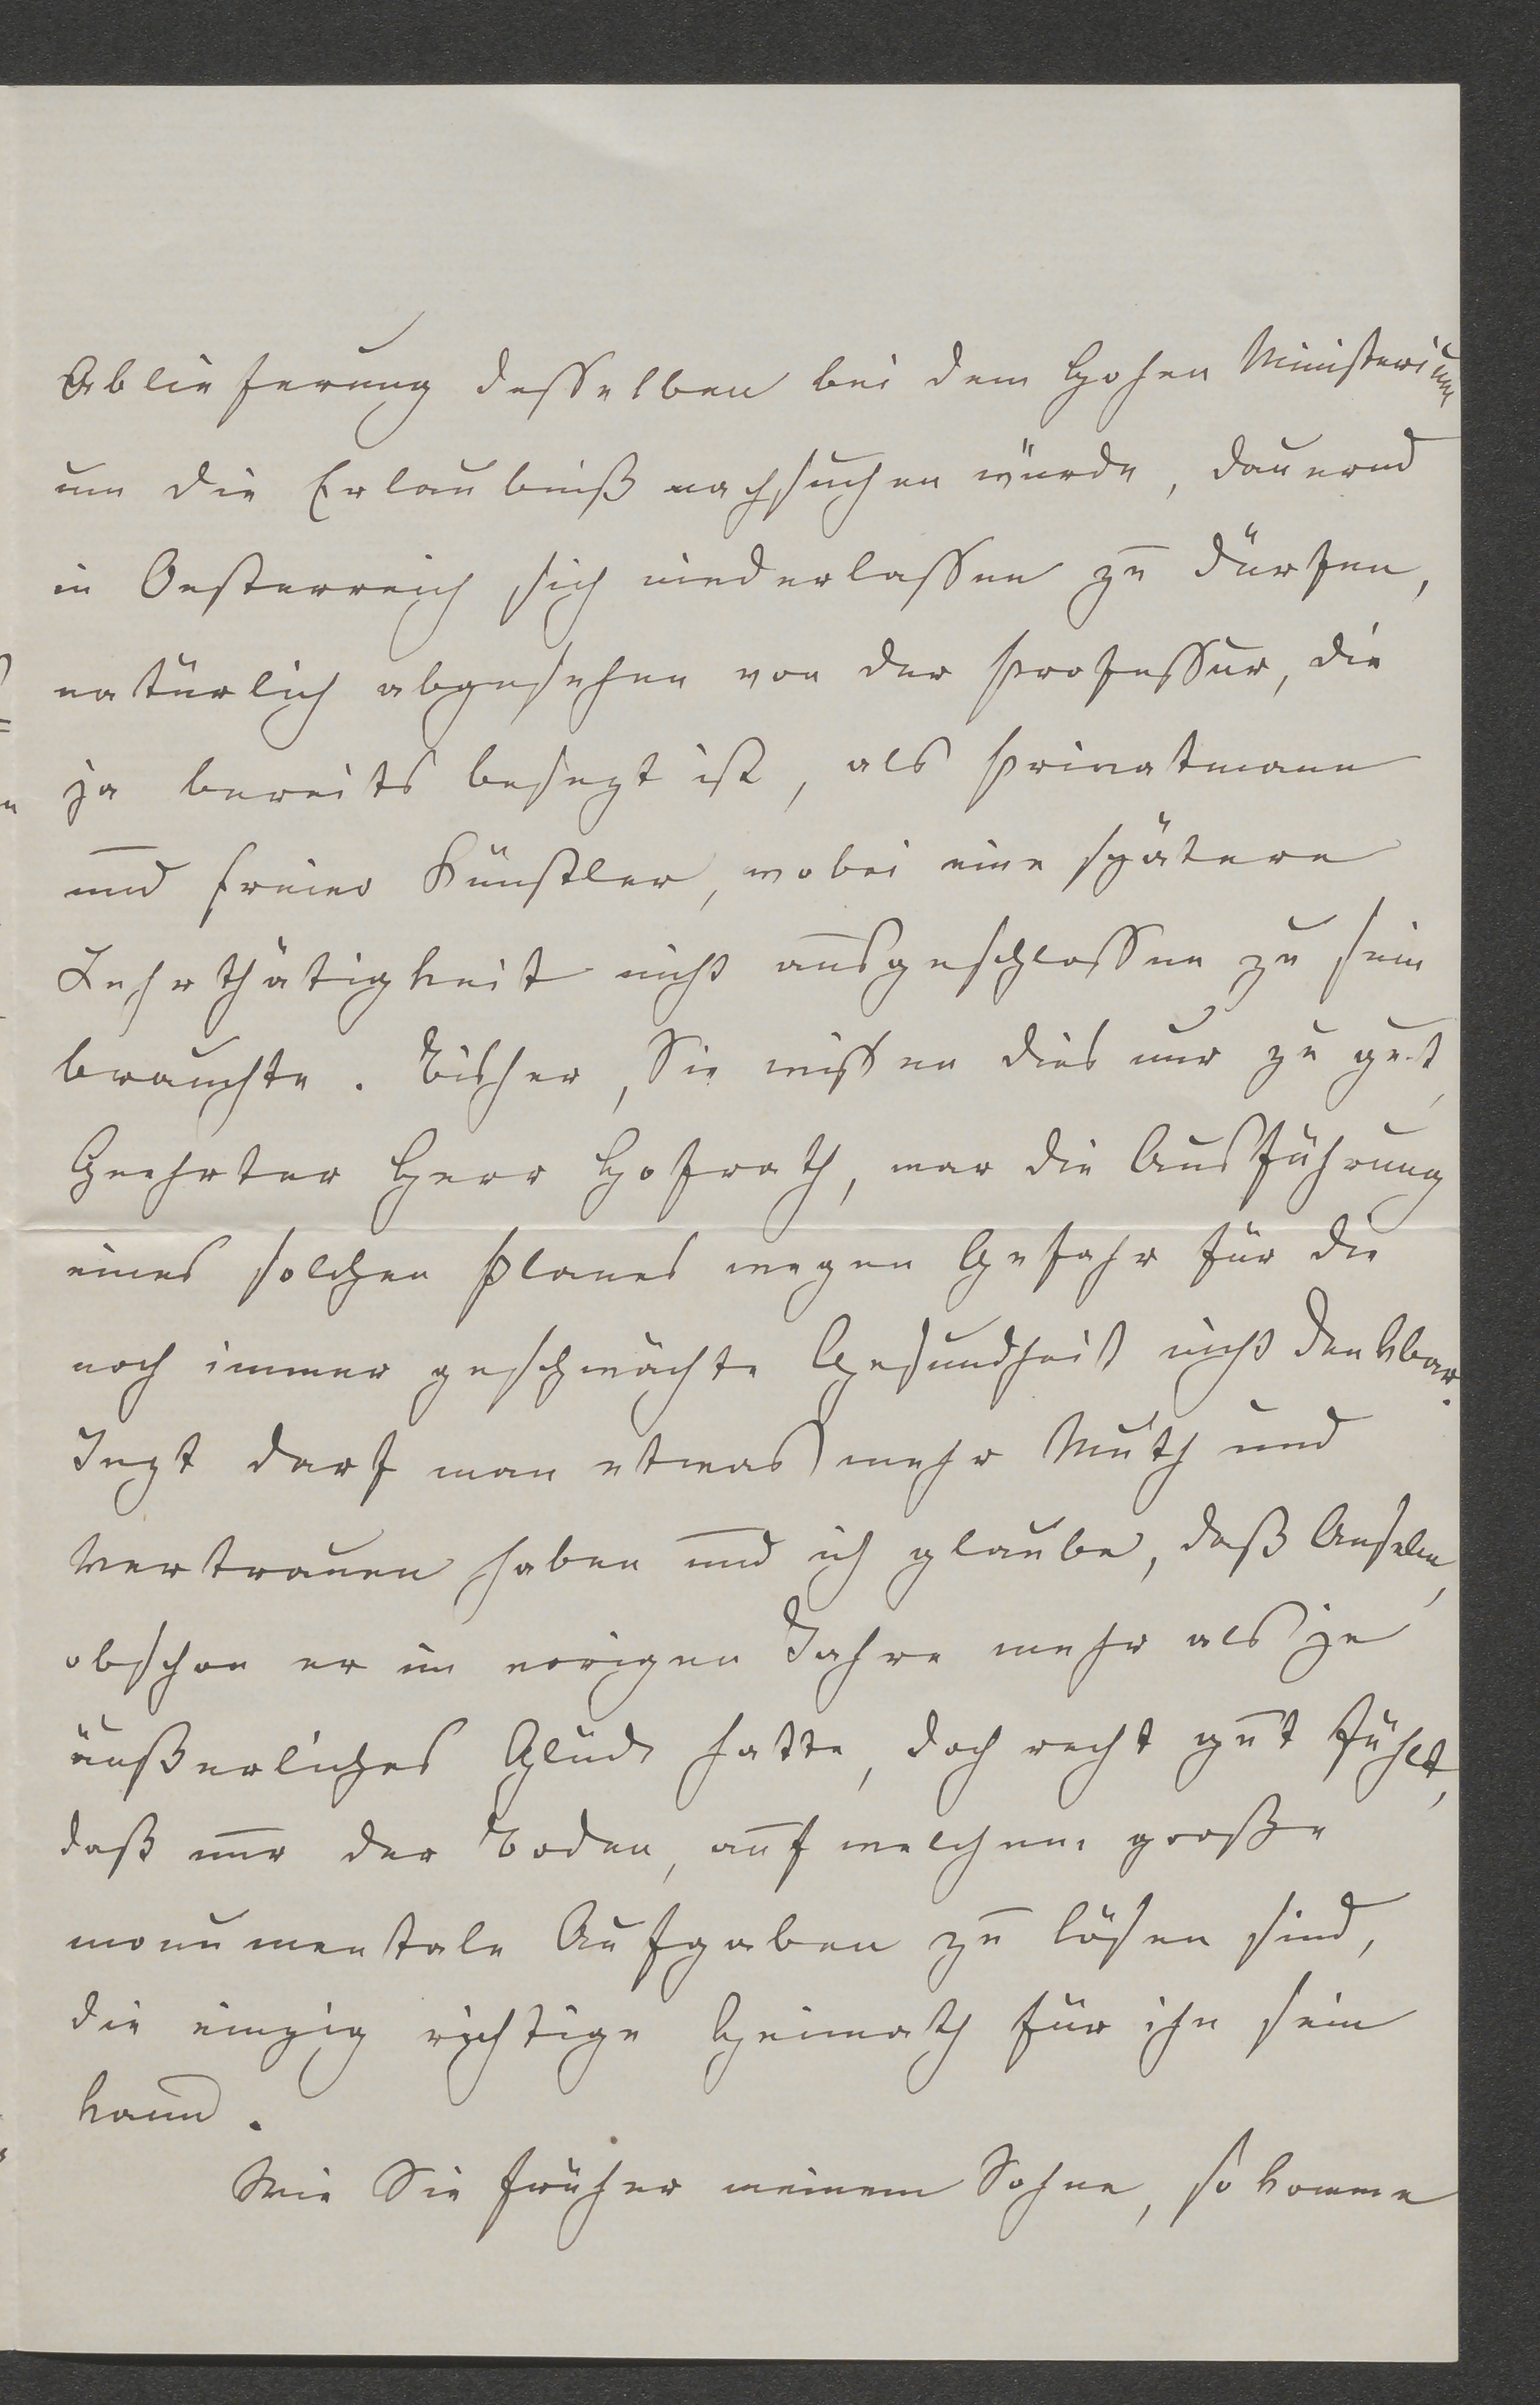 Ablieferung desselben bei dem Hohen Ministerium
um die Erlaubniß nachsuchen würde, dauernd
in Oesterreich sich niederlassen zu dürfen,
natürlich abgesehen von der Professur, die
ja bereits besezt ist, als Privatmann
und freier Künstler, wobei eine spätere
Lehrthätigkeit nicht ausgeschlossen zu sein
brauchte. Bisher, Sie wissen dies nur zu gut,
Geehrter Herr Hofrath, war die Ausführung
eines solchen Planes wegen Gefahr für die
noch immer geschwächte Gesundheit nicht denkbar.
Jezt darf man etwas mehr Muth und
Vertrauen haben und ich glaube, daß Anselm,
obschon er im vorigen Jahre mehr als je
äußerliches Glück hatte, doch recht gut fühlt,
daß nur der Boden, auf welchem große
monumentale Aufgaben zu lösen sind,
die einzig richtige Heimath für ihn sein
kann.
Wie Sie früher meinem Sohne, so komme